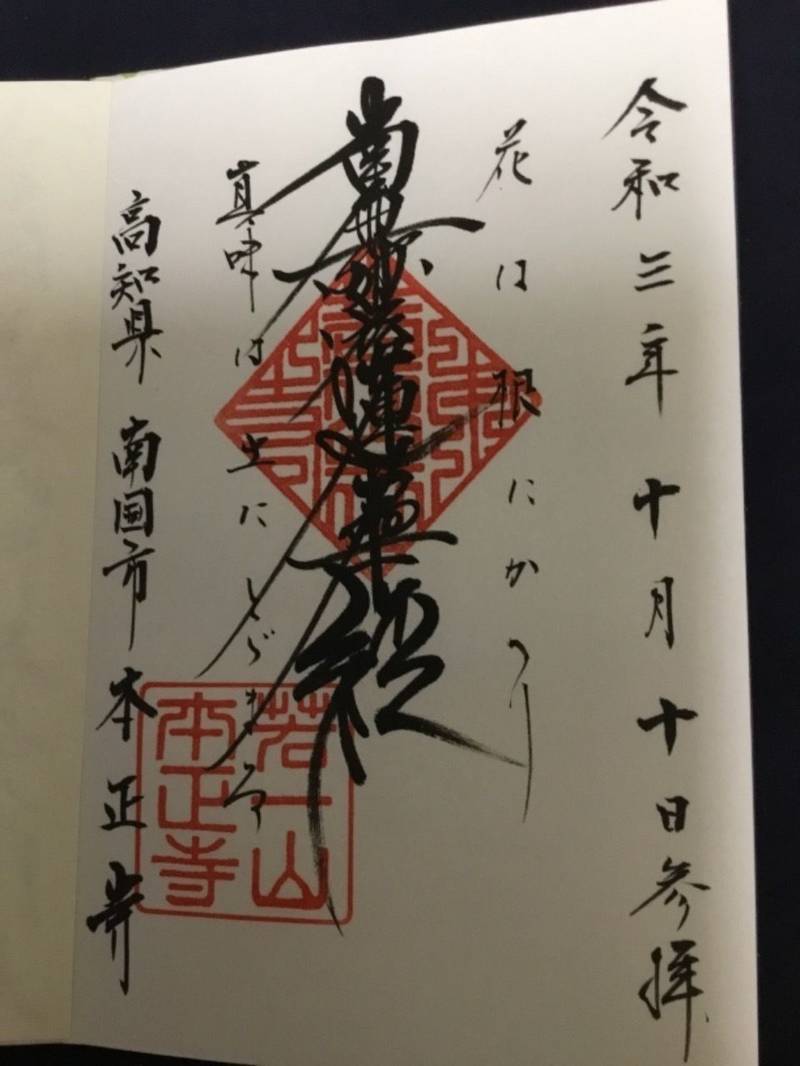 令和三年十月十日参拝
花は根にかへり
南無妙法蓮華経
真味は土にとゞまる
高知県 南国市 本正寺
一山
本正寺